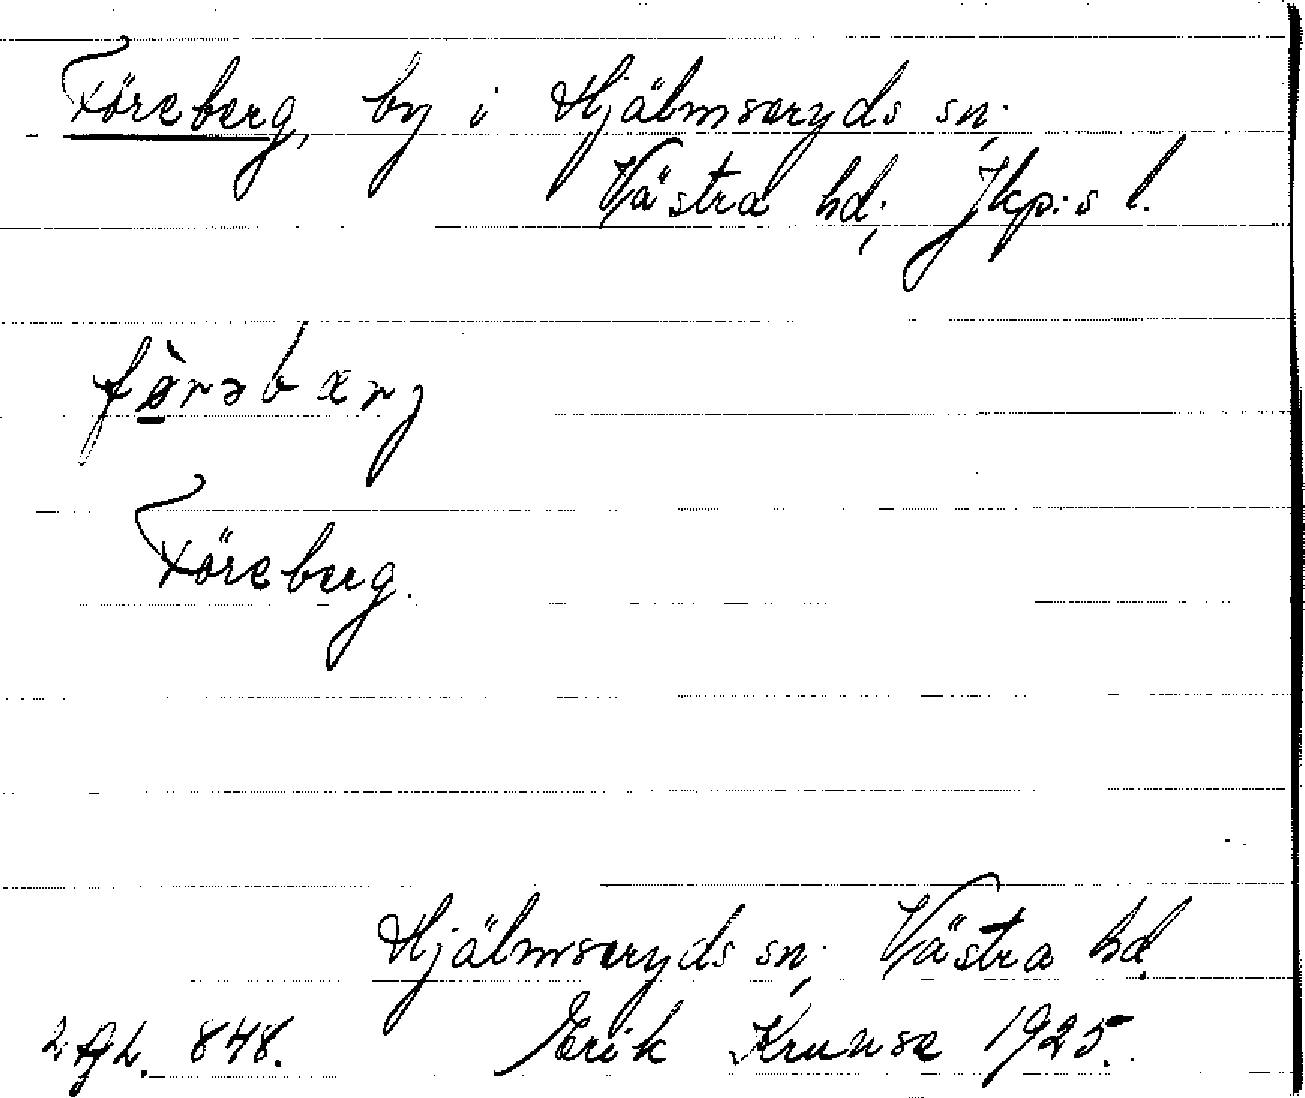 Föreberg, by i Hjälmseryds sn;
Västra hd; Jkp:s l.
fø̀rəbærj
Föreberg.
Hjälmseryds sn; Västra hd.
848. Erik Krunse 1925.